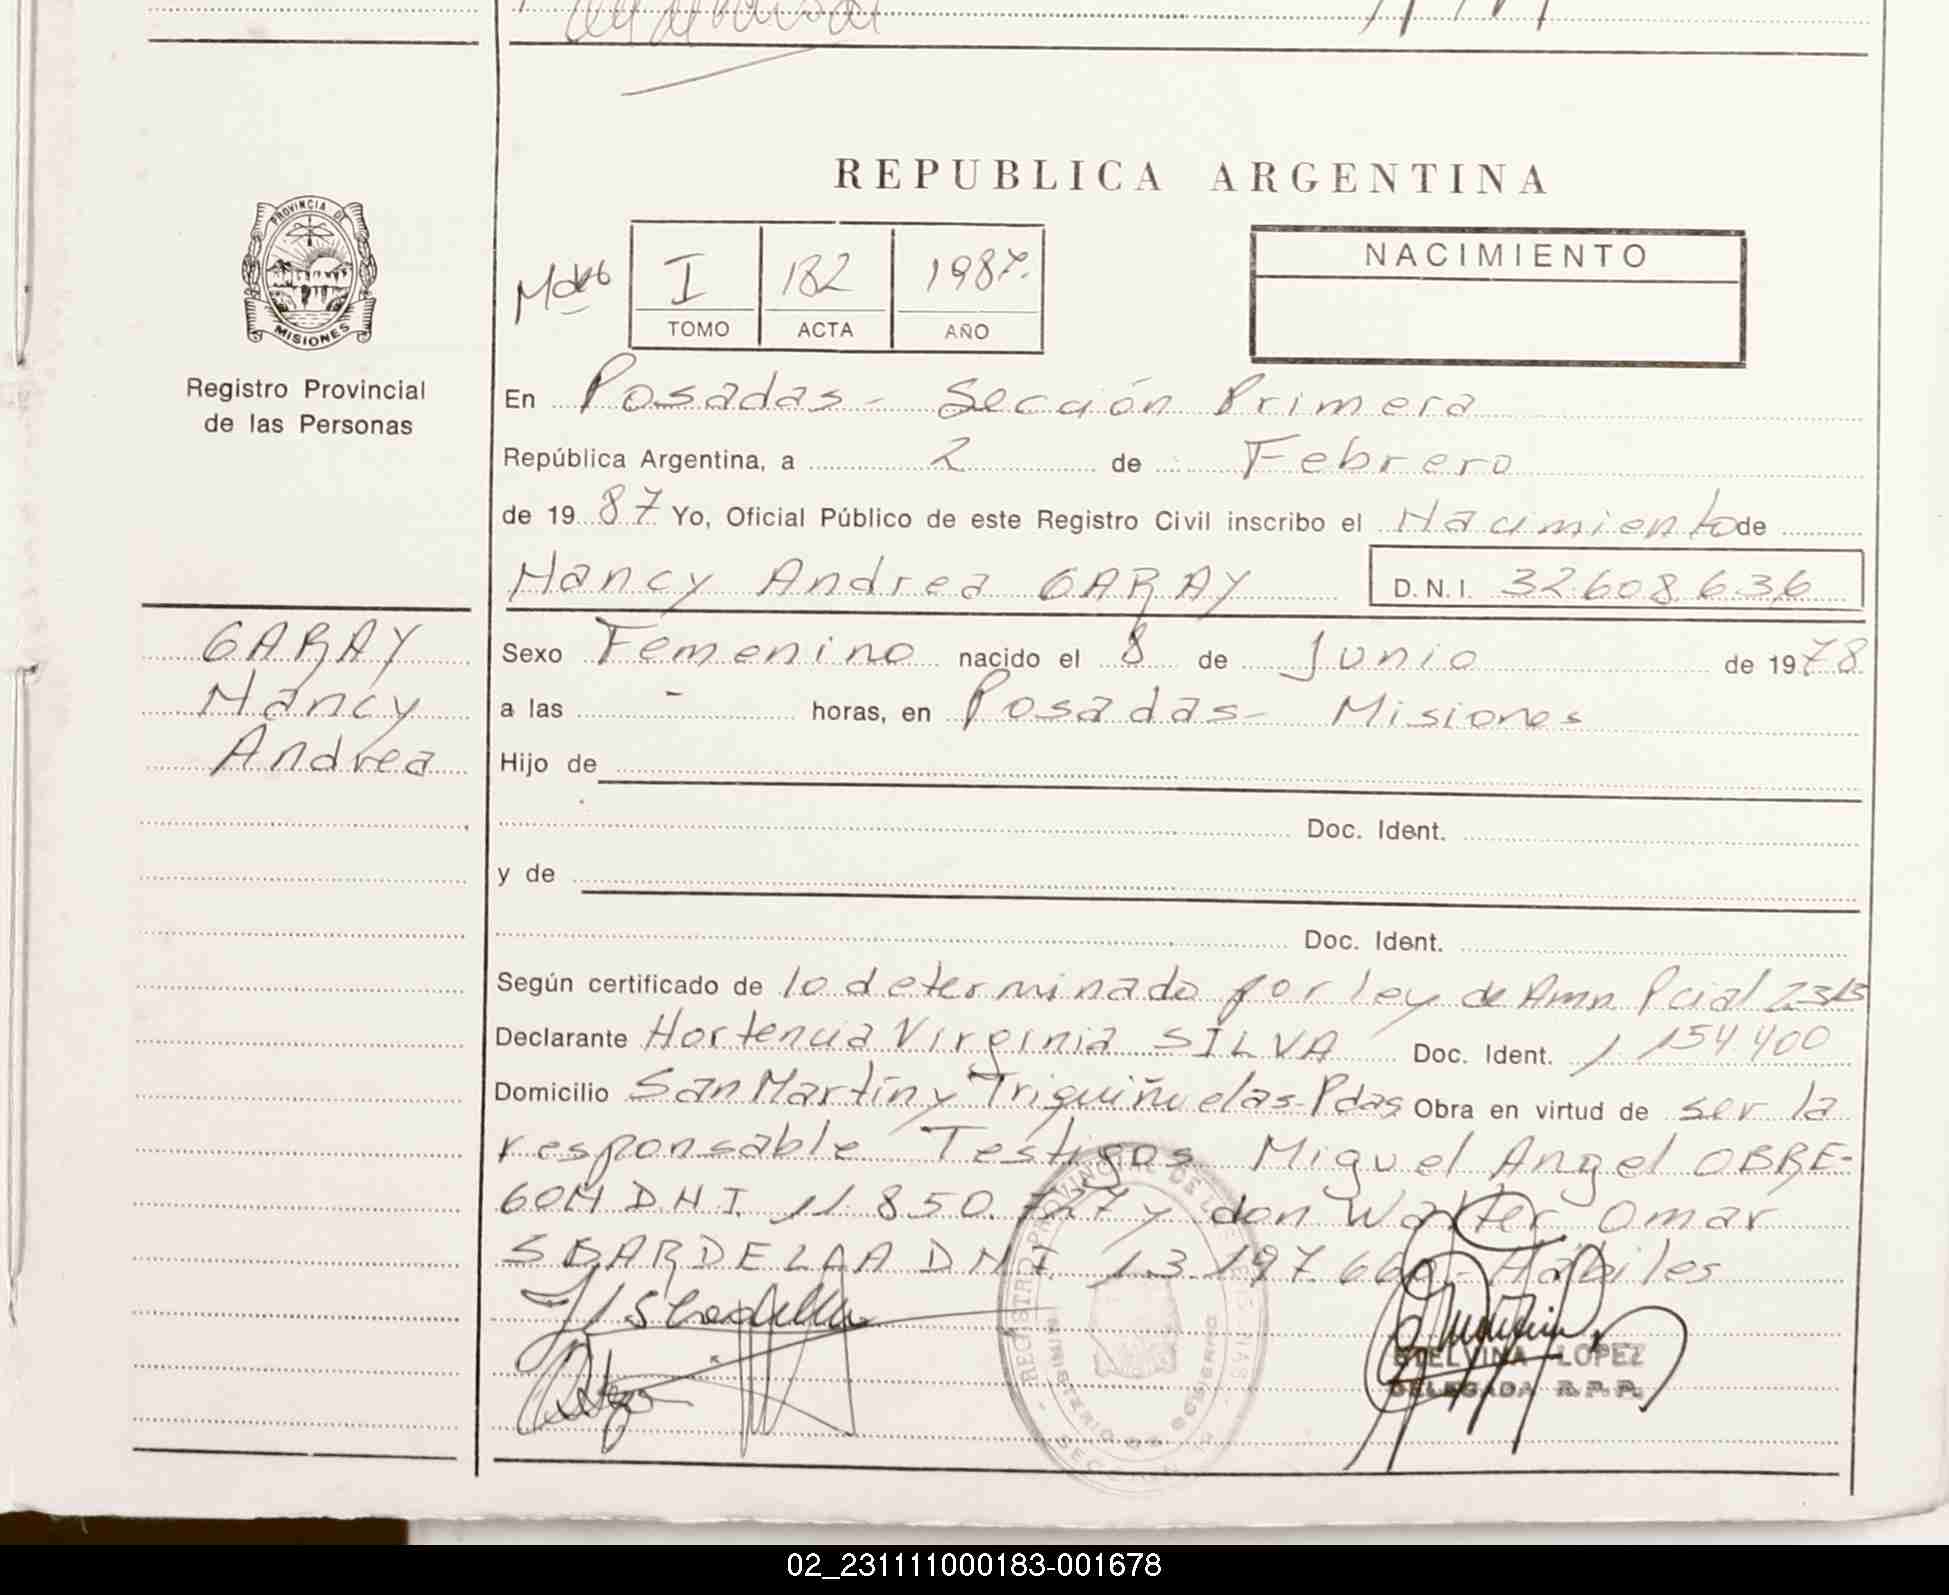 REPUBLICA ARGENTINA
PROVINCIA DE
MISIONES
Registro Provincial
de las Personas
I 182 1987.
TOMO ACTA AÑO
NACIMIENTO
En Posadas - Sección Primera
República Argentina, a 2 de Febrero
de 19 87 Yo, Oficial Público de este Registro Civil inscribo el Nacimiento de
Nancy Andrea GARAY D.N.I. 32.608.636
GARAY
Nancy
Andrea
Sexo Femenino nacido el 8 de Junio de 1978
a las - horas, en Posadas - Misiones
Hijo de
Doc. Ident.
y de
Doc. Ident.
Según certificado de lo determinado por ley de Amn Pcial
Declarante Hortencia Virginia SILVA Doc. Ident. 1.154.400
Domicilio San Martín y Triguiñuelas - Pdas Obra en virtud de ser la
responsable Testigos Miguel Angel OBRE-
GON D.N.I. 11.850.727 y don Walter Omar
SBARDELLA DNI 13.197.660 - Hábiles
ETELVINA LOPEZ
DELEGADA R.P.P.
02_231111000183-001678